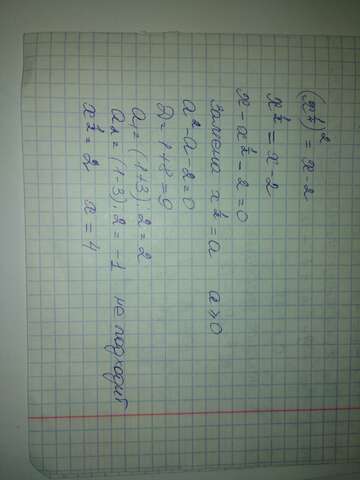 (x^{1/4})^2 = x-2
x^{1/2} = x-2
x - x^{1/2} - 2 = 0
Замена x^{1/2} = a a≥0
a^2 - a - 2 = 0
D = 1+8 = 9
a_1 = (1+3):2 = 2
a_2 = (1-3):2 = -1 не подходит
x^{1/2} = 2 x = 4